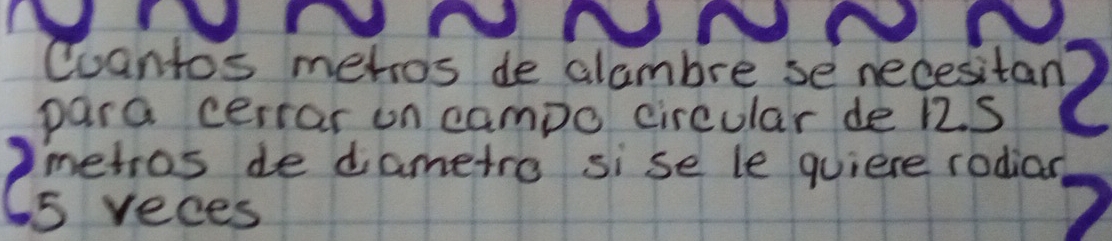 Cuantos metros de alambre se necesitan
para cerrar un campo circular de 12.5
metros de diametro si se le quiere rodiar
5 veces